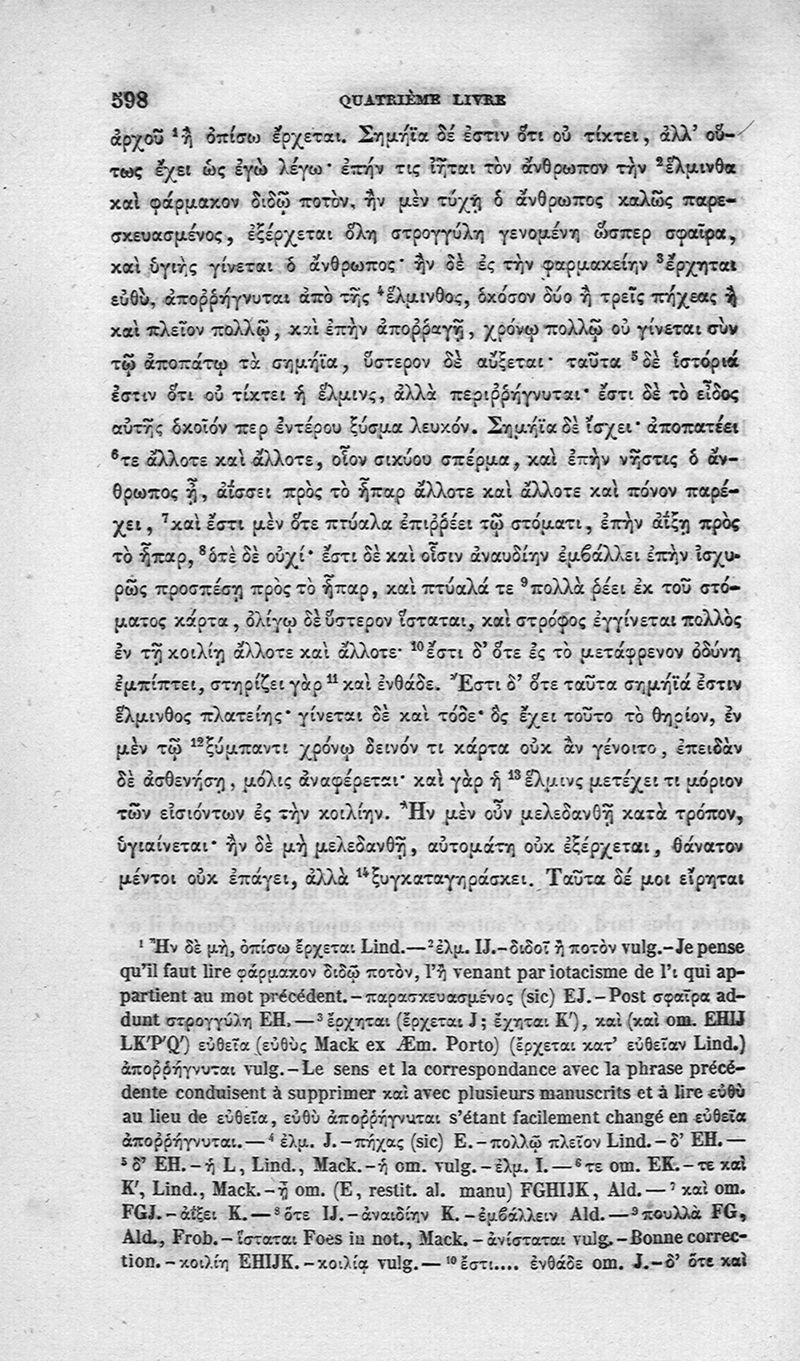 598 QUATRIÈME LIVRE
ἀρχοῦ ¹ἢ ὀπίσω ἔρχεται. Σημήϊα δέ ἐστιν ὅτι οὐ τίκτει, ἀλλ’ οὕ-
τως ἔχει ὡς ἐγὼ λέγω· ἐπήν τις ἰῆται τὸν ἄνθρωπον τὴν ²ἕλμινθα
καὶ φάρμακον διδῷ ποτὸν, ἢν μὲν τύχῃ ὁ ἄνθρωπος καλῶς παρε-
σκευασμένος, ἐξέρχεται ὅλη στρογγύλη γενομένη ὥσπερ σφαῖρα,
καὶ ὑγιὴς γίνεται ὁ ἄνθρωπος· ἢν δὲ ἐς τὴν φαρμακείην ³ἔρχηται
εὐθὺ, ἀποῤῥήγνυται ἀπὸ τῆς ⁴ἕλμινθος, ὁκόσον δύο ἢ τρεῖς πήχεας ἢ
καὶ πλεῖον πολλῷ, καὶ ἐπὴν ἀποῤῥαγῇ, χρόνῳ πολλῷ οὐ γίνεται σὺν
τῷ ἀποπάτῳ τὰ σημήϊα, ὕστερον δὲ αὔξεται· ταῦτα ⁵δὲ ἱστόριά
ἐστιν ὅτι οὐ τίκτει ἡ ἕλμινς, ἀλλὰ περιῤῥήγνυται· ἔστι δὲ τὸ εἶδος
αὐτῆς ὁκοῖόν περ ἐντέρου ξύσμα λευκόν. Σημήϊα δὲ ἴσχει· ἀποπατέει
⁶τε ἄλλοτε καὶ ἄλλοτε, οἷον σικύου σπέρμα, καὶ ἐπὴν νῆστις ὁ ἄν-
θρωπος ᾖ, ἀΐσσει πρὸς τὸ ἧπαρ ἄλλοτε καὶ ἄλλοτε καὶ πόνον παρέ-
χει, ⁷καὶ ἔστι μὲν ὅτε πτύαλα ἐπιῤῥέει τῷ στόματι, ἐπὴν ἀΐξῃ πρὸς
τὸ ἧπαρ, ⁸ὁτὲ δὲ οὐχί· ἔστι δὲ καὶ οἷσιν ἀναυδίην ἐμβάλλει ἐπὴν ἰσχυ-
ρῶς προσπέσῃ πρὸς τὸ ἧπαρ, καὶ πτύαλά τε ⁹πολλὰ ῥέει ἐκ τοῦ στό-
ματος κάρτα, ὀλίγῳ δὲ ὕστερον ἵσταται, καὶ στρόφος ἐγγίνεται πολλὸς
ἐν τῇ κοιλίῃ ἄλλοτε καὶ ἄλλοτε· ¹⁰ἔστι δ’ ὅτε ἐς τὸ μετάφρενον ὀδύνη
ἐμπίπτει, στηρίζει γὰρ ¹¹καὶ ἐνθάδε. Ἔστι δ’ ὅτε ταῦτα σημήϊά ἐστιν
ἕλμινθος πλατείης· γίνεται δὲ καὶ τόδε· ὃς ἔχει τοῦτο τὸ θηρίον, ἐν
μὲν τῷ ¹²ξύμπαντι χρόνῳ δεινόν τι κάρτα οὐκ ἂν γένοιτο, ἐπειδὰν
δὲ ἀσθενήσῃ, μόλις ἀναφέρεται· καὶ γὰρ ἡ ¹³ἕλμινς μετέχει τι μόριον
τῶν εἰσιόντων ἐς τὴν κοιλίην. Ἢν μὲν οὖν μελεδανθῇ κατὰ τρόπον,
ὑγιαίνεται· ἢν δὲ μὴ μελεδανθῇ, αὐτομάτη οὐκ ἐξέρχεται, θάνατον
μέντοι οὐκ ἐπάγει, ἀλλὰ ¹⁴ξυγκαταγηράσκει. Ταῦτα δέ μοι εἴρηται
¹ Ἢν δὲ μὴ, ὀπίσω ἔρχεται Lind.—²ἑλμ. IJ.–διδοῖ ἢ ποτὸν vulg.–Je pense
qu’il faut lire φάρμακον διδῷ ποτὸν, l’ἢ venant par iotacisme de l’ι qui ap-
partient au mot précédent.–παρασκευασμένος (sic) EJ.–Post σφαῖρα ad-
dunt στρογγύλη EH.—³ἔρχηται (ἔρχεται J; ἔχηται K′), καὶ (καὶ om. EHIJ
LK′P′Q′) εὐθεῖα (εὐθὺς Mack ex Æm. Porto) (ἔρχεται κατ’ εὐθεῖαν Lind.)
ἀποῤῥήγνυται vulg.–Le sens et la correspondance avec la phrase précé-
dente conduisent à supprimer καὶ avec plusieurs manuscrits et à lire εὐθὺ
au lieu de εὐθεῖα, εὐθὺ ἀποῤῥήγνυται s’étant facilement changé en εὐθεῖα
ἀποῤῥήγνυται.—⁴ ἑλμ. J.–πήχας (sic) E.–πολλῷ πλεῖον Lind.–δ’ EH.—
⁵ δ’ EH.–ἡ L, Lind., Mack.–ἡ om. vulg.–ἑλμ. I.—⁶τε om. EK.–τε καὶ
K′, Lind., Mack.–ᾖ om. (E, restit. al. manu) FGHIJK, Ald.—⁷ καὶ om.
FGJ.–ἀΐξει K.—⁸ὅτε IJ.–ἀναιδίην K.–ἐμβάλλειν Ald.—⁹πουλλὰ FG,
Ald., Frob.–ἵσταται Foes in not., Mack.–ἀνίσταται vulg.–Bonne correc-
tion.–κοιλίη EHIJK.–κοιλίᾳ vulg.—¹⁰ἔστι.... ἐνθάδε om. J.–δ’ ὅτε καὶ